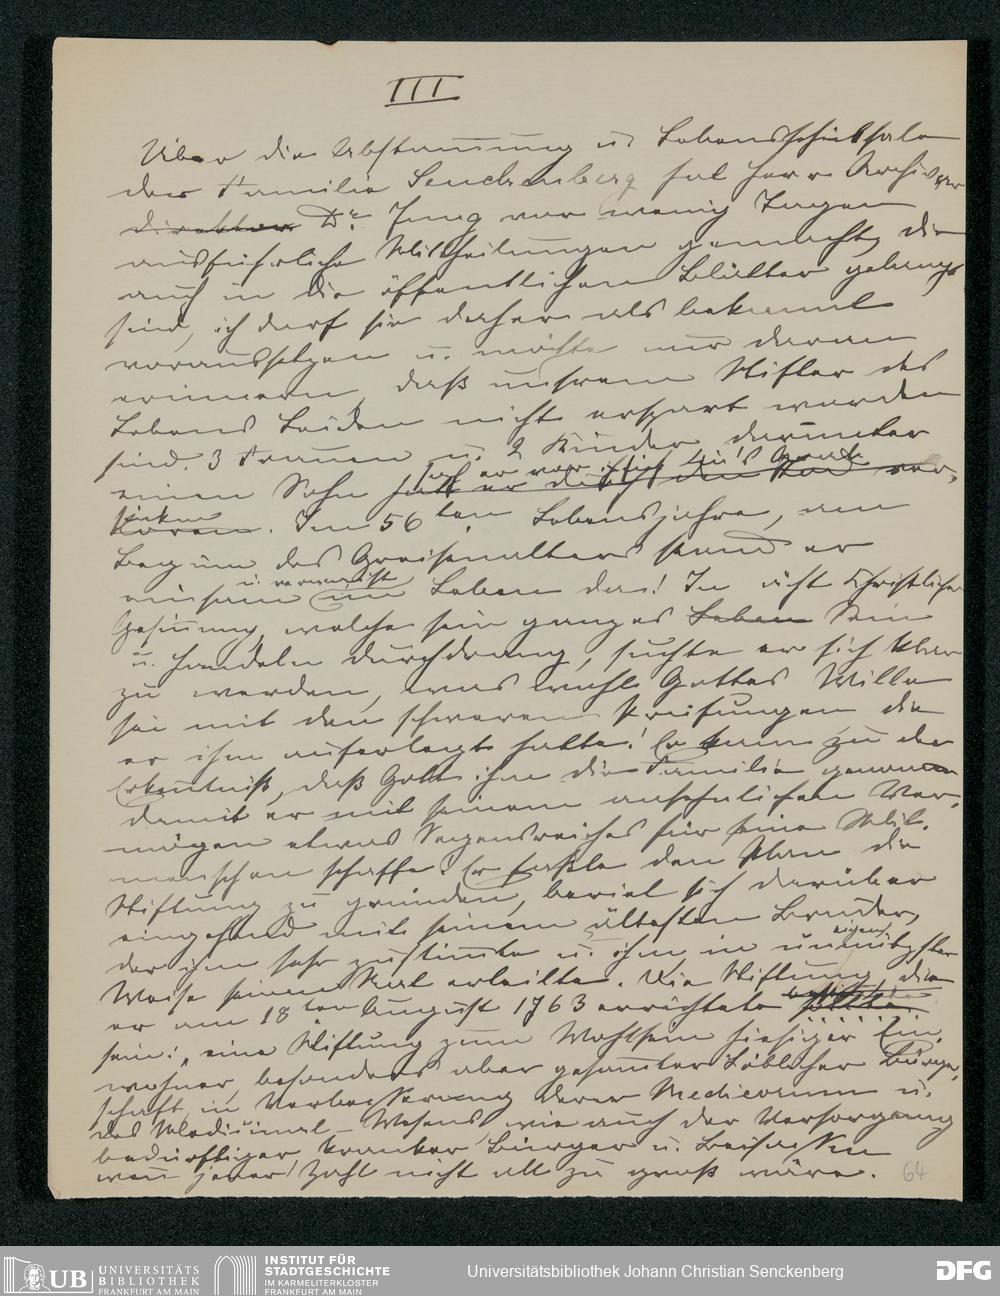 III
Über die Abstammung u. Lebensschicksale
der Familie Senckenberg hat Herr Archivar
direktor Dr. Jung vor wenig Tagen
ausführliche Mittheilungen gemacht, die
auch in die öffentlichen Blätter gelangt
sind, ich darf sie daher als bekannt
voraussetzen u. möchte nur daran
erinnern, daß unserem Stifter des
Lebens Leiden nicht erspart worden
sind. 3 Frauen u. 2 Kinder darunter
einen Sohn hatte er durch den Tod ver-
sah er vor sich in's Grab
sinken
loren. Im 56ten Lebensjahre, am
Beginn des Greisenalters stand er
einsam u. verwaist im Leben da! In ächt christlicher
Gesinnung, welche sein ganzes Leben Sein
u. Handeln durchdrang, suchte er sich klar
zu werden, was wohl Gottes Wille
sei mit den schweren Prüfungen die
er ihm auferlegt hatte! Er kam zu der
Erkentniß, daß Gott ihm die Familie genommen
damit er mit seinem ansehnlichen Ver-
mögen etwas Segensreiches für seine Mit-
menschen schaffe. Er faßte den Plan die
Stiftung zu gründen, beriet sich darüber
eingehend mit seinem ältesten Bruder,
der ihm sehr zustimte u. ihm in uneigennützigster
Weise seinen Rat erteilte. Die Stiftung, die
er am 18ten August 1763 errichtete sollte
sein: „eine Stiftung zum Wohlsein hiesiger Ein-
wohner, besonders aber gesamter Löblicher Bürger-
schaft, in Verbesserung derer Medicorum u.
des Medicinal-Wesens wie auch der Versorgung
bedürftiger kranker Bürger u. Beisassen
wen jener Zahl nicht all zu groß wäre.
64
UB UNIVERSITÄTS
BIBLIOTHEK
FRANKFURT AM MAIN
INSTITUT FÜR
STADTGESCHICHTE
IM KARMELITERKLOSTER
FRANKFURT AM MAIN
Universitätsbibliothek Johann Christian Senckenberg
DFG